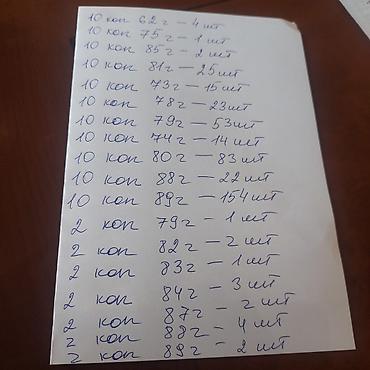 10 коп 62г – 4 шт
10 коп 75г – 1 шт
10 коп 85г – 2 шт
10 коп 81г – 25 шт
10 коп 73г – 15 шт
10 коп 78г – 23 шт
10 коп 79г – 53 шт
10 коп 74г – 14 шт
10 коп 80г – 83 шт
10 коп 88г – 22 шт
10 коп 89г – 154 шт
2 коп 79г – 1 шт
2 коп 82г – 2 шт
2 коп 83г – 1 шт
2 коп 84г – 3 шт
2 коп 87г – 2 шт
2 коп 88г – 4 шт
2 коп 89г – 2 шт